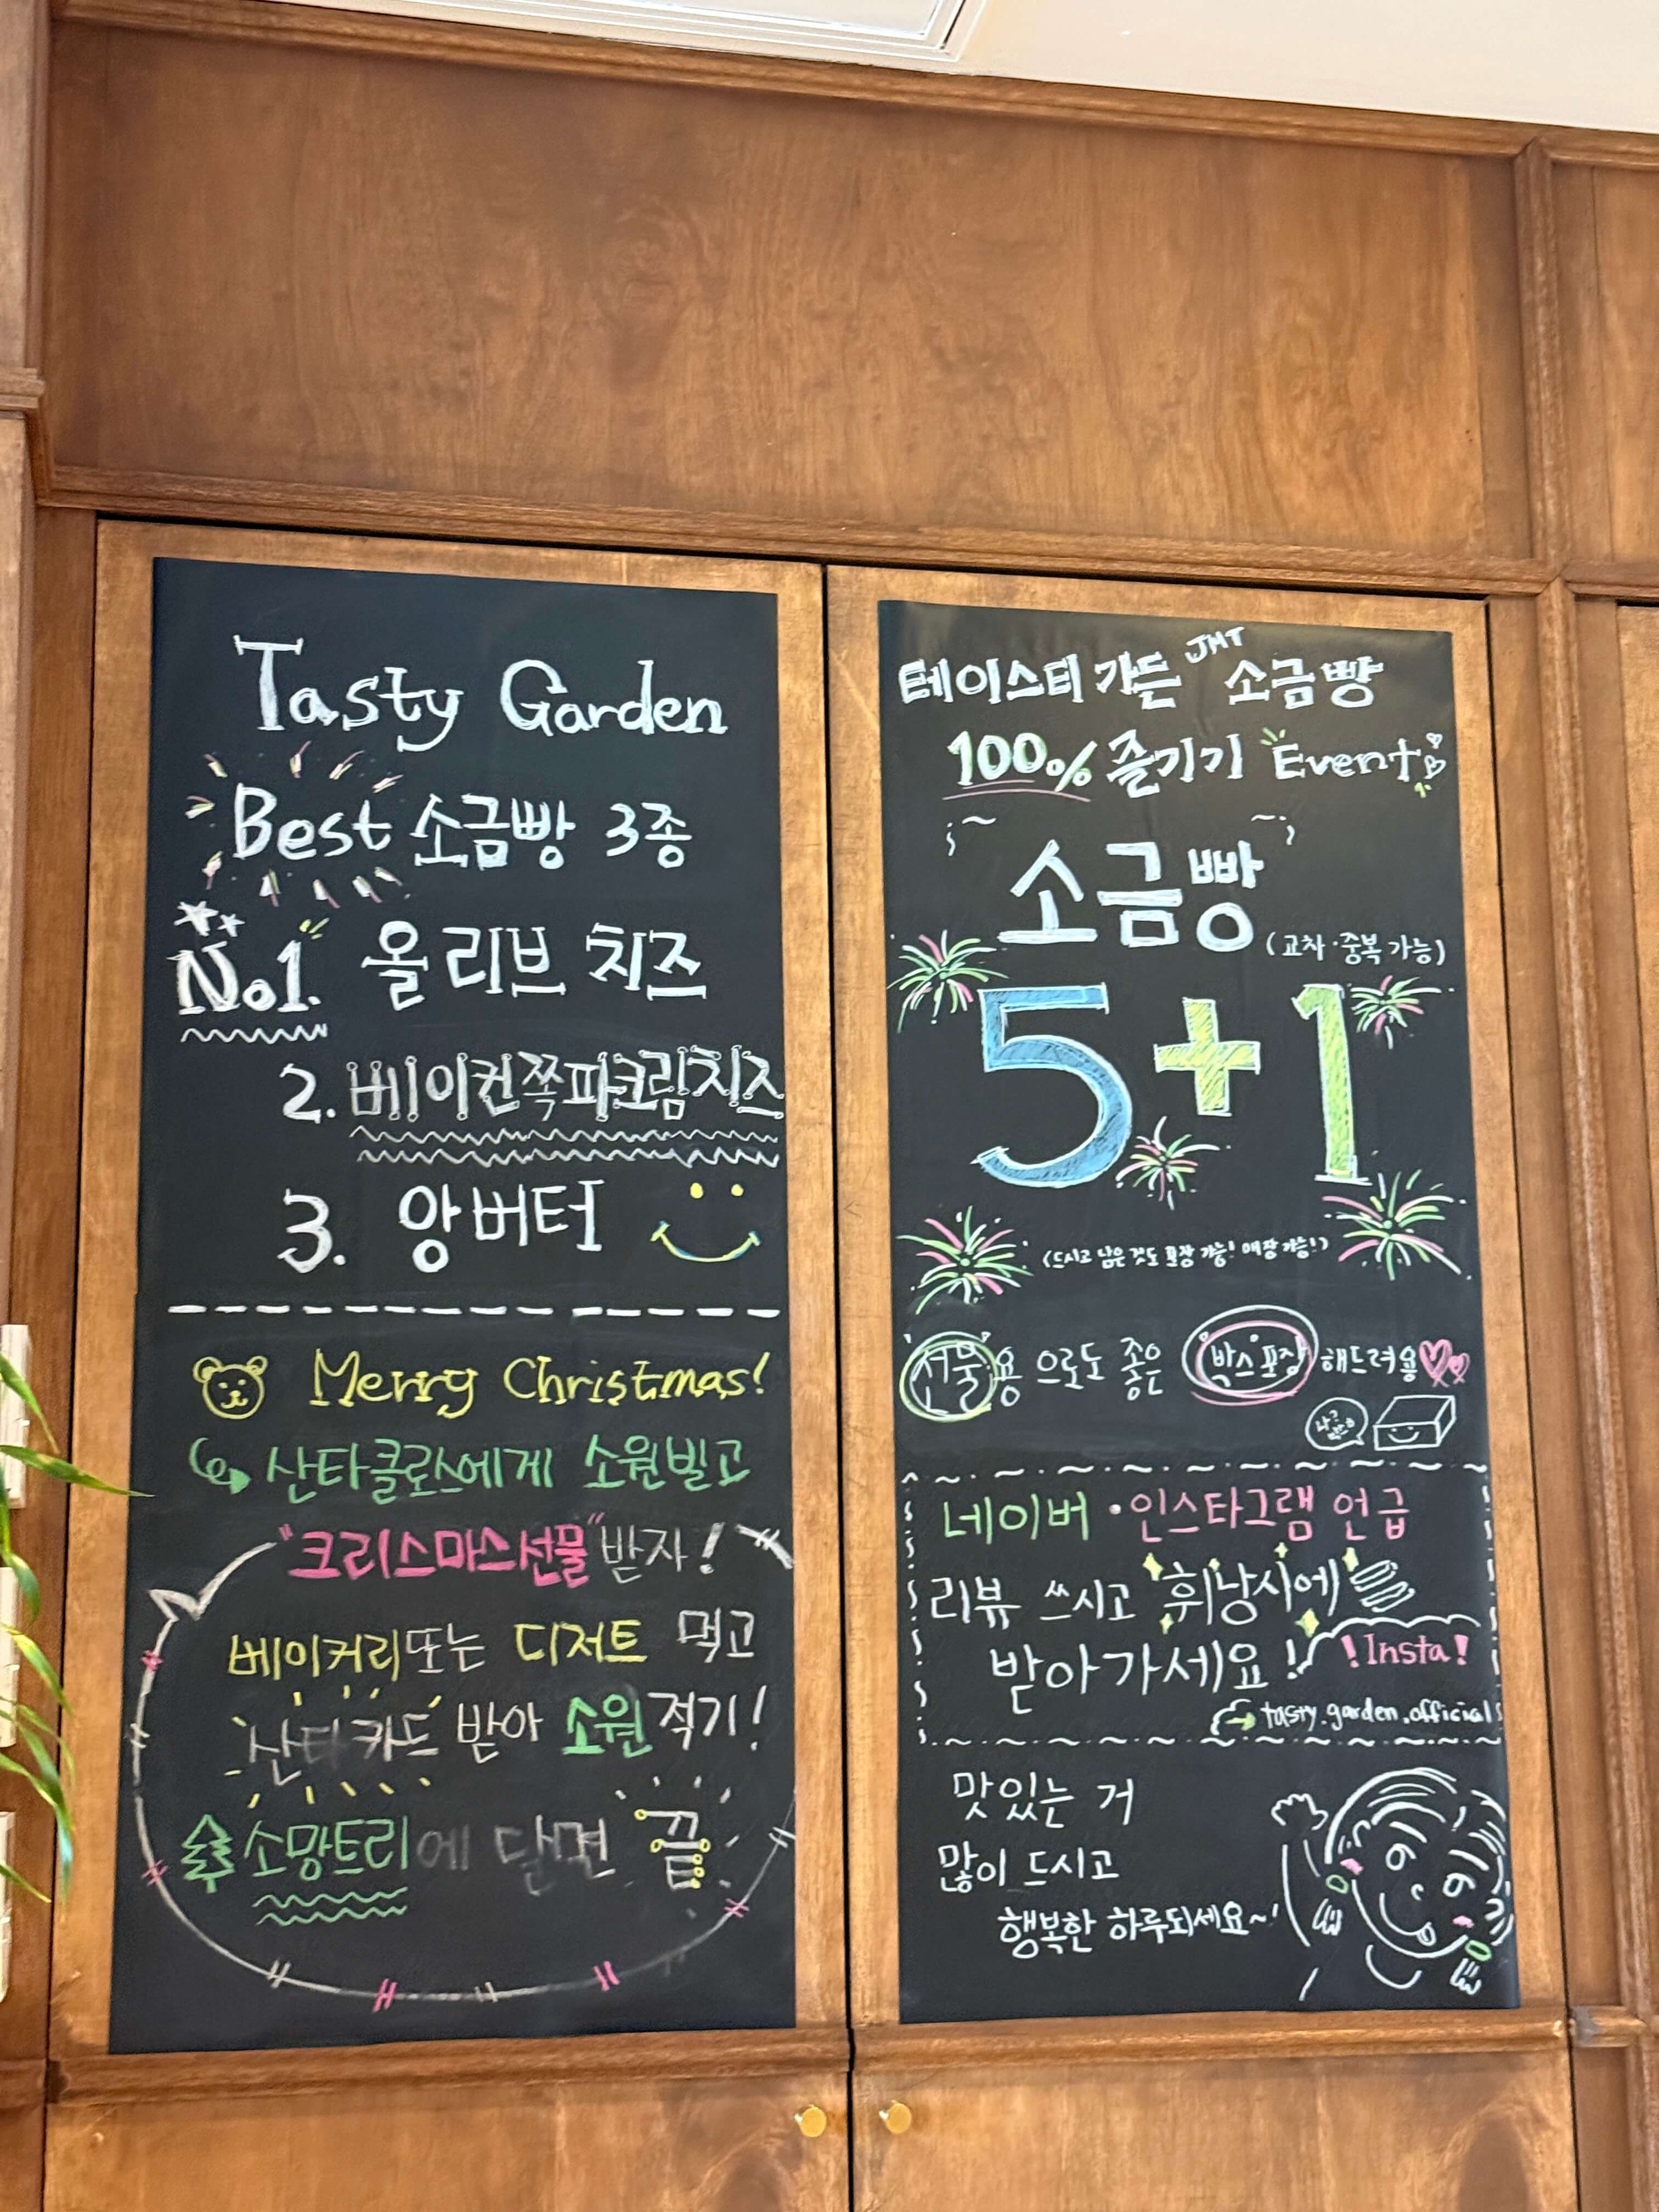 Tasty Garden
Best 소금빵 3종
No1. 올리브 치즈
2. 베이컨쪽파크림치즈
3. 앙버터
Merry Christmas!
산타클로스에게 소원빌고
"크리스마스선물"받자!
베이커리또는 디저트 먹고
산타카드 받아 소원적기!
소망트리에 달면 끝
JMT
테이스티 가든 소금빵
100% 즐기기 Event
소금빵
(교차·중복 가능)
5+1
(드시고 남은 것도 포장 가능! 매장 가능!)
선물용으로도 좋은 박스포장 해드려용
네이버·인스타그램 언급
리뷰 쓰시고 휘낭시에
받아가세요!
!Insta!
tasty.garden.official
맛있는 거
많이 드시고
행복한 하루되세요~!